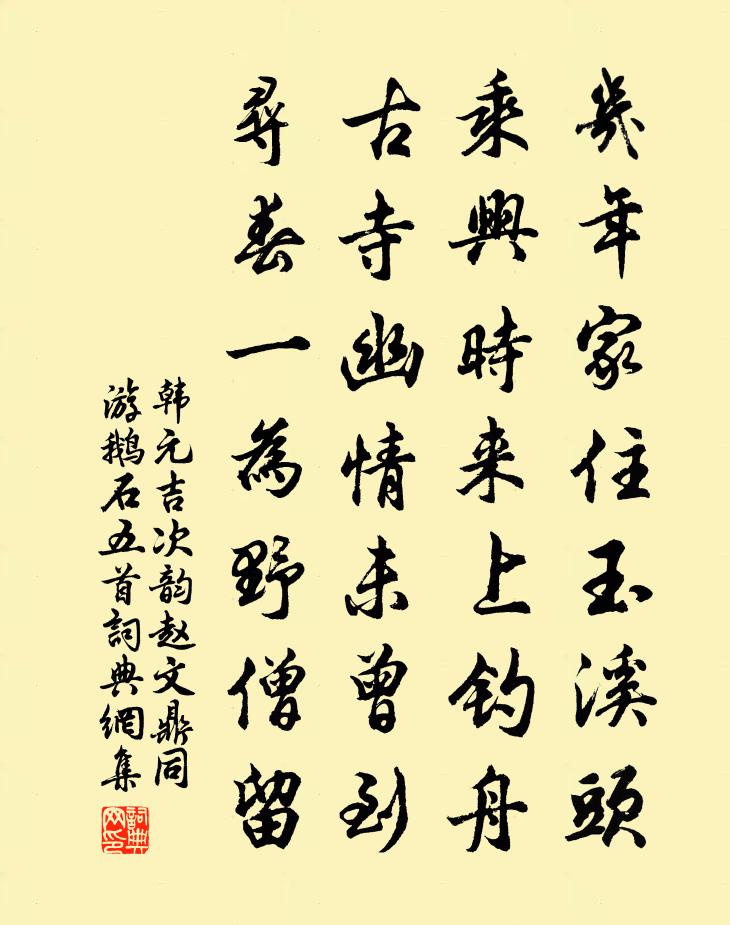 幾年家住玉溪頭
乘興時来上钓舟
古寺幽情未曾到
尋春一為野僧留
韩元吉次韵赵文鼎同
游鹅石五首詞典網集
詞典
网印